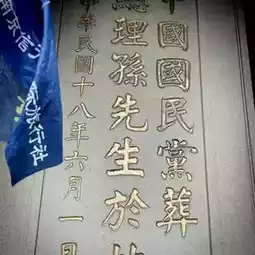 中國國民黨葬
總理孫先生於此
中華民國十八年六月一日
旅行社